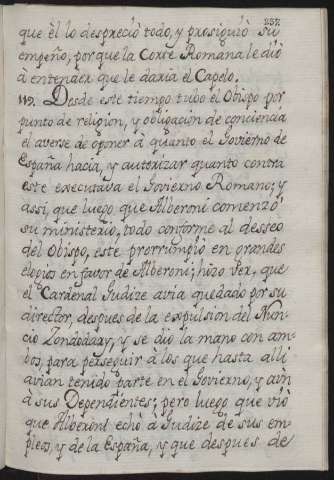 257.
que èl lo despreciò todo, y prosiguiò su
empeño; porque la Corte Romana le diò
à entender que le daria el Capelo.
119. Desde este tiempo tubo el Obispo por
punto de religion, y obligacion de conciencia
el averse de oponer à quanto el Govierno de
España hacia, y autorizar quanto contra
este executava el Govierno Romano; y
assi, que luego que Alberoni comenzò
su ministerio, todo conforme al desseo
del Obispo, este prorrumpiò en grandes
elogios en favor de Alberoni; hizo ver, que
el Cardenal Judize avia quedado por su
director, despues de la expulsion del Nun-
cio Zondodary, y se diò la mano con am-
bos, para perseguir à los que hasta alli
avian tenido parte en el Govierno, y aùn
à sus Dependientes; pero luego que viò
que Alberoni echò à Judize de sus em-
pleos, y de la España, y que despues de